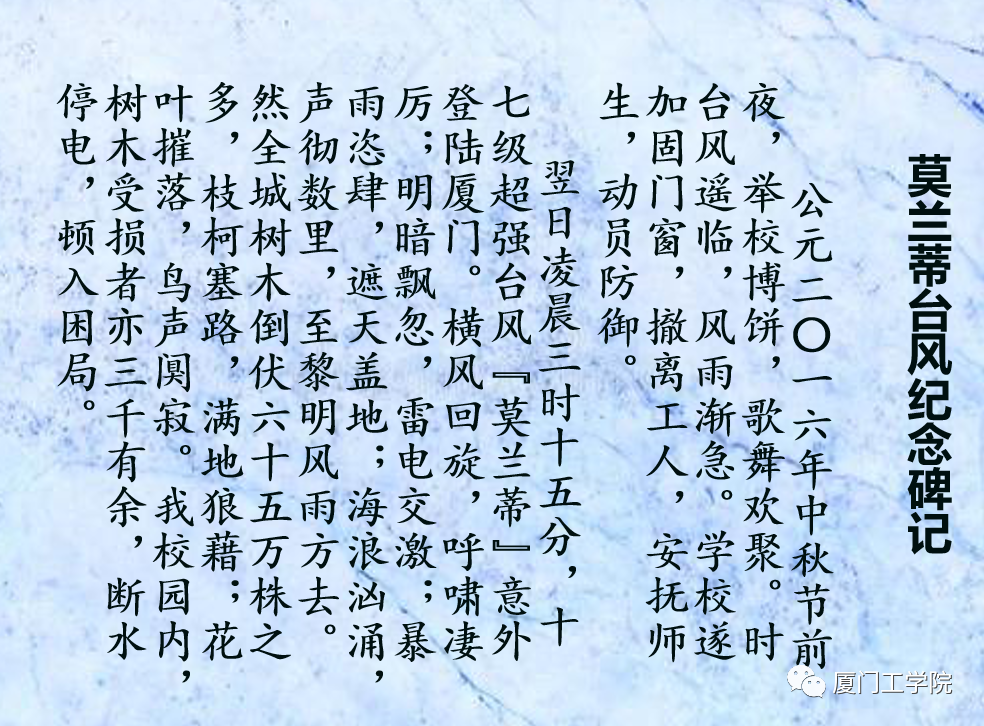 莫兰蒂台风纪念碑记
公元二〇一六年中秋节前
夜，举校博饼，歌舞欢聚。时
台风遥临，风雨渐急。学校遂
加固门窗，撤离工人，安抚师
生，动员防御。
翌日凌晨三时十五分，十
七级超强台风『莫兰蒂』意外
登陆厦门。横风回旋，呼啸凄
厉；明暗飘忽，雷电交激；暴
雨恣肆，遮天盖地；海浪汹涌，
声彻数里，至黎明风雨方去。
然全城树木倒伏六十五万株之
多，枝柯塞路，满地狼藉；花
叶摧落，鸟声阒寂。我校园内，
树木受损者亦三千有余，断水
停电，顿入困局。
厦门工学院